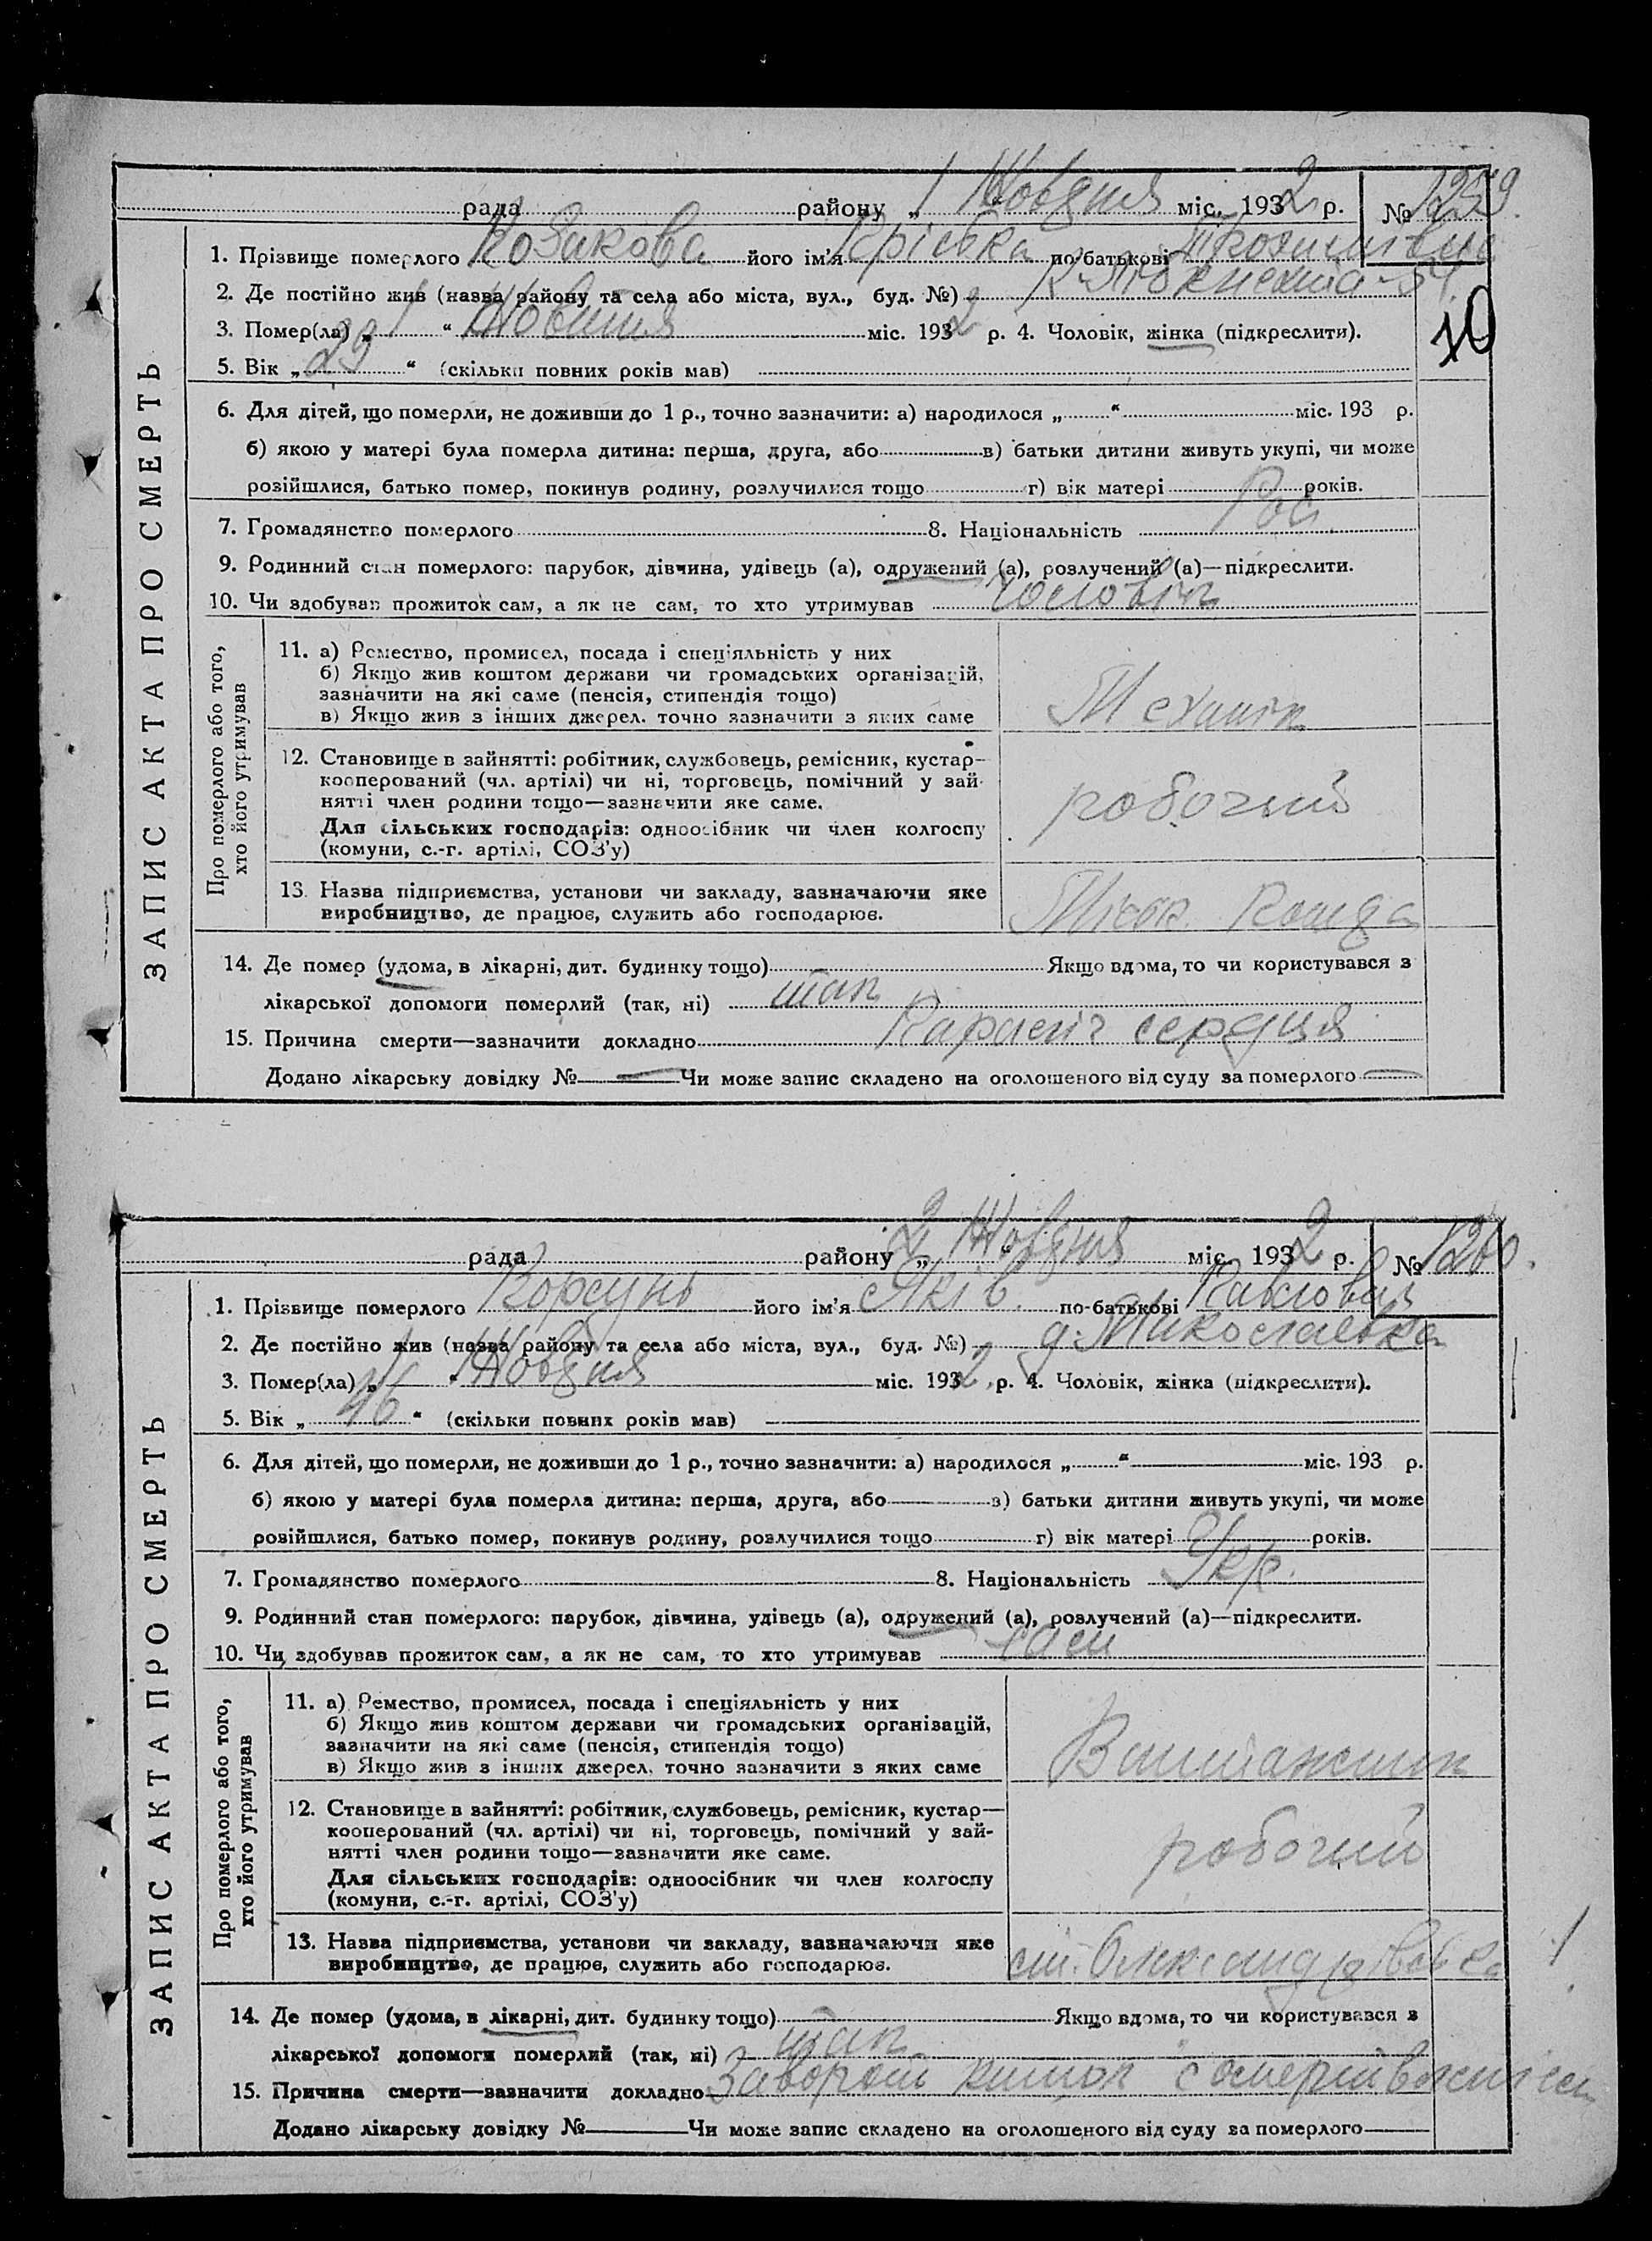 ЗАПИС АКТА ПРО СМЕРТЬ
рада району „ 1 Жовдня міс. 1932 р. № 1259.
1. Прізвище померлого Козакова його ім'я по-батькові
2. Де постійно жив (назва району та села або міста, вул., буд. №)
3. Помер(ла) „ 1 “ міс. 1932 р. 4. Чоловік, жінка (підкреслити).
10
5. Вік „ 29 “ (скільки повних років мав)
6. Для дітей, що померли, не доживши до 1 р., точно зазначити: а) народилося „ “ міс. 193 р.
б) якою у матері була померла дитина: перша, друга, або в) батьки дитини живуть укупі, чи може
розійшлися, батько помер, покинув родину, розлучилися тощо г) вік матері років.
7. Громадянство померлого 8. Національність Рос.
9. Родинний стан померлого: парубок, дівчина, удівець (а), одружений (а), розлучений (а)—підкреслити.
10. Чи здобував прожиток сам, а як не сам, то хто утримував чоловік
Про померлого або того,
хто його утримував
11. а) Ремество, промисел, посада і спеціяльність у них
б) Якщо жив коштом держави чи громадських організацій,
зазначити на які саме (пенсія, стипендія тощо)
в) Якщо жив з інших джерел. точно зазначити з яких саме
Механік
12. Становище в зайнятті: робітник, службовець, ремісник, кустар—
кооперований (чл. артілі) чи ні, торговець, помічний у зай-
нятті член родини тощо—зазначити яке саме.
Для сільських господарів: одноосібник чи член колгоспу
(комуни, с.-г. артілі, СОЗ'у)
робочий
13. Назва підприємства, установи чи закладу, зазначаючи яке
виробництво, де працює, служить або господарює.
14. Де помер (удома, в лікарні, дит. будинку тощо) Якщо вдома, то чи користувався з
лікарської допомоги померлий (так, ні) так
15. Причина смерти—зазначити докладно сердця
Додано лікарську довідку № — Чи може запис складено на оголошеного від суду за померлого —
ЗАПИС АКТА ПРО СМЕРТЬ
рада району „ 2 “ Жовдня міс. 1932 р. № 1260.
1. Прізвище померлого Корсунь його ім'я Яків. по-батькові Павлович
2. Де постійно жив (назва району та села або міста, вул., буд. №)
3. Помер(ла) „ 1 “ Жовдня міс. 1932 р. 4. Чоловік, жінка (підкреслити).
5. Вік „ 46 “ (скільки повних років мав)
6. Для дітей, що померли, не доживши до 1 р., точно зазначити: а) народилося „ “ міс. 193 р.
б) якою у матері була померла дитина: перша, друга, або в) батьки дитини живуть укупі, чи може
розійшлися, батько помер, покинув родину, розлучилися тощо г) вік матері років.
7. Громадянство померлого 8. Національність Укр.
9. Родинний стан померлого: парубок, дівчина, удівець (а), одружений (а), розлучений (а)—підкреслити.
10. Чи здобував прожиток сам, а як не сам, то хто утримував сам
Про померлого або того,
хто його утримував
11. а) Ремество, промисел, посада і спеціяльність у них
б) Якщо жив коштом держави чи громадських організацій,
зазначити на які саме (пенсія, стипендія тощо)
в) Якщо жив з інших джерел. точно зазначити з яких саме
12. Становище в зайнятті: робітник, службовець, ремісник, кустар—
кооперований (чл. артілі) чи ні, торговець, помічний у зай-
нятті член родини тощо—зазначити яке саме.
Для сільських господарів: одноосібник чи член колгоспу
(комуни, с.-г. артілі, СОЗ'у)
робочий
13. Назва підприємства, установи чи закладу, зазначаючи яке
виробництво, де працює, служить або господарює.
ст. Олександрівська
14. Де помер (удома, в лікарні, дит. будинку тощо) Якщо вдома, то чи користувався з
лікарської допомоги померлий (так, ні) так
15. Причина смерти—зазначити докладно Заворот кишок с
Додано лікарську довідку № Чи може запис складено на оголошеного від суду за померлого